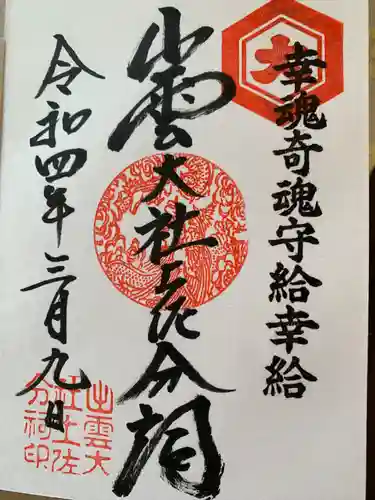 幸魂奇魂守給幸給
出雲大社土佐分祠
令和四年三月九日
大
出雲大
社土佐
分祠印